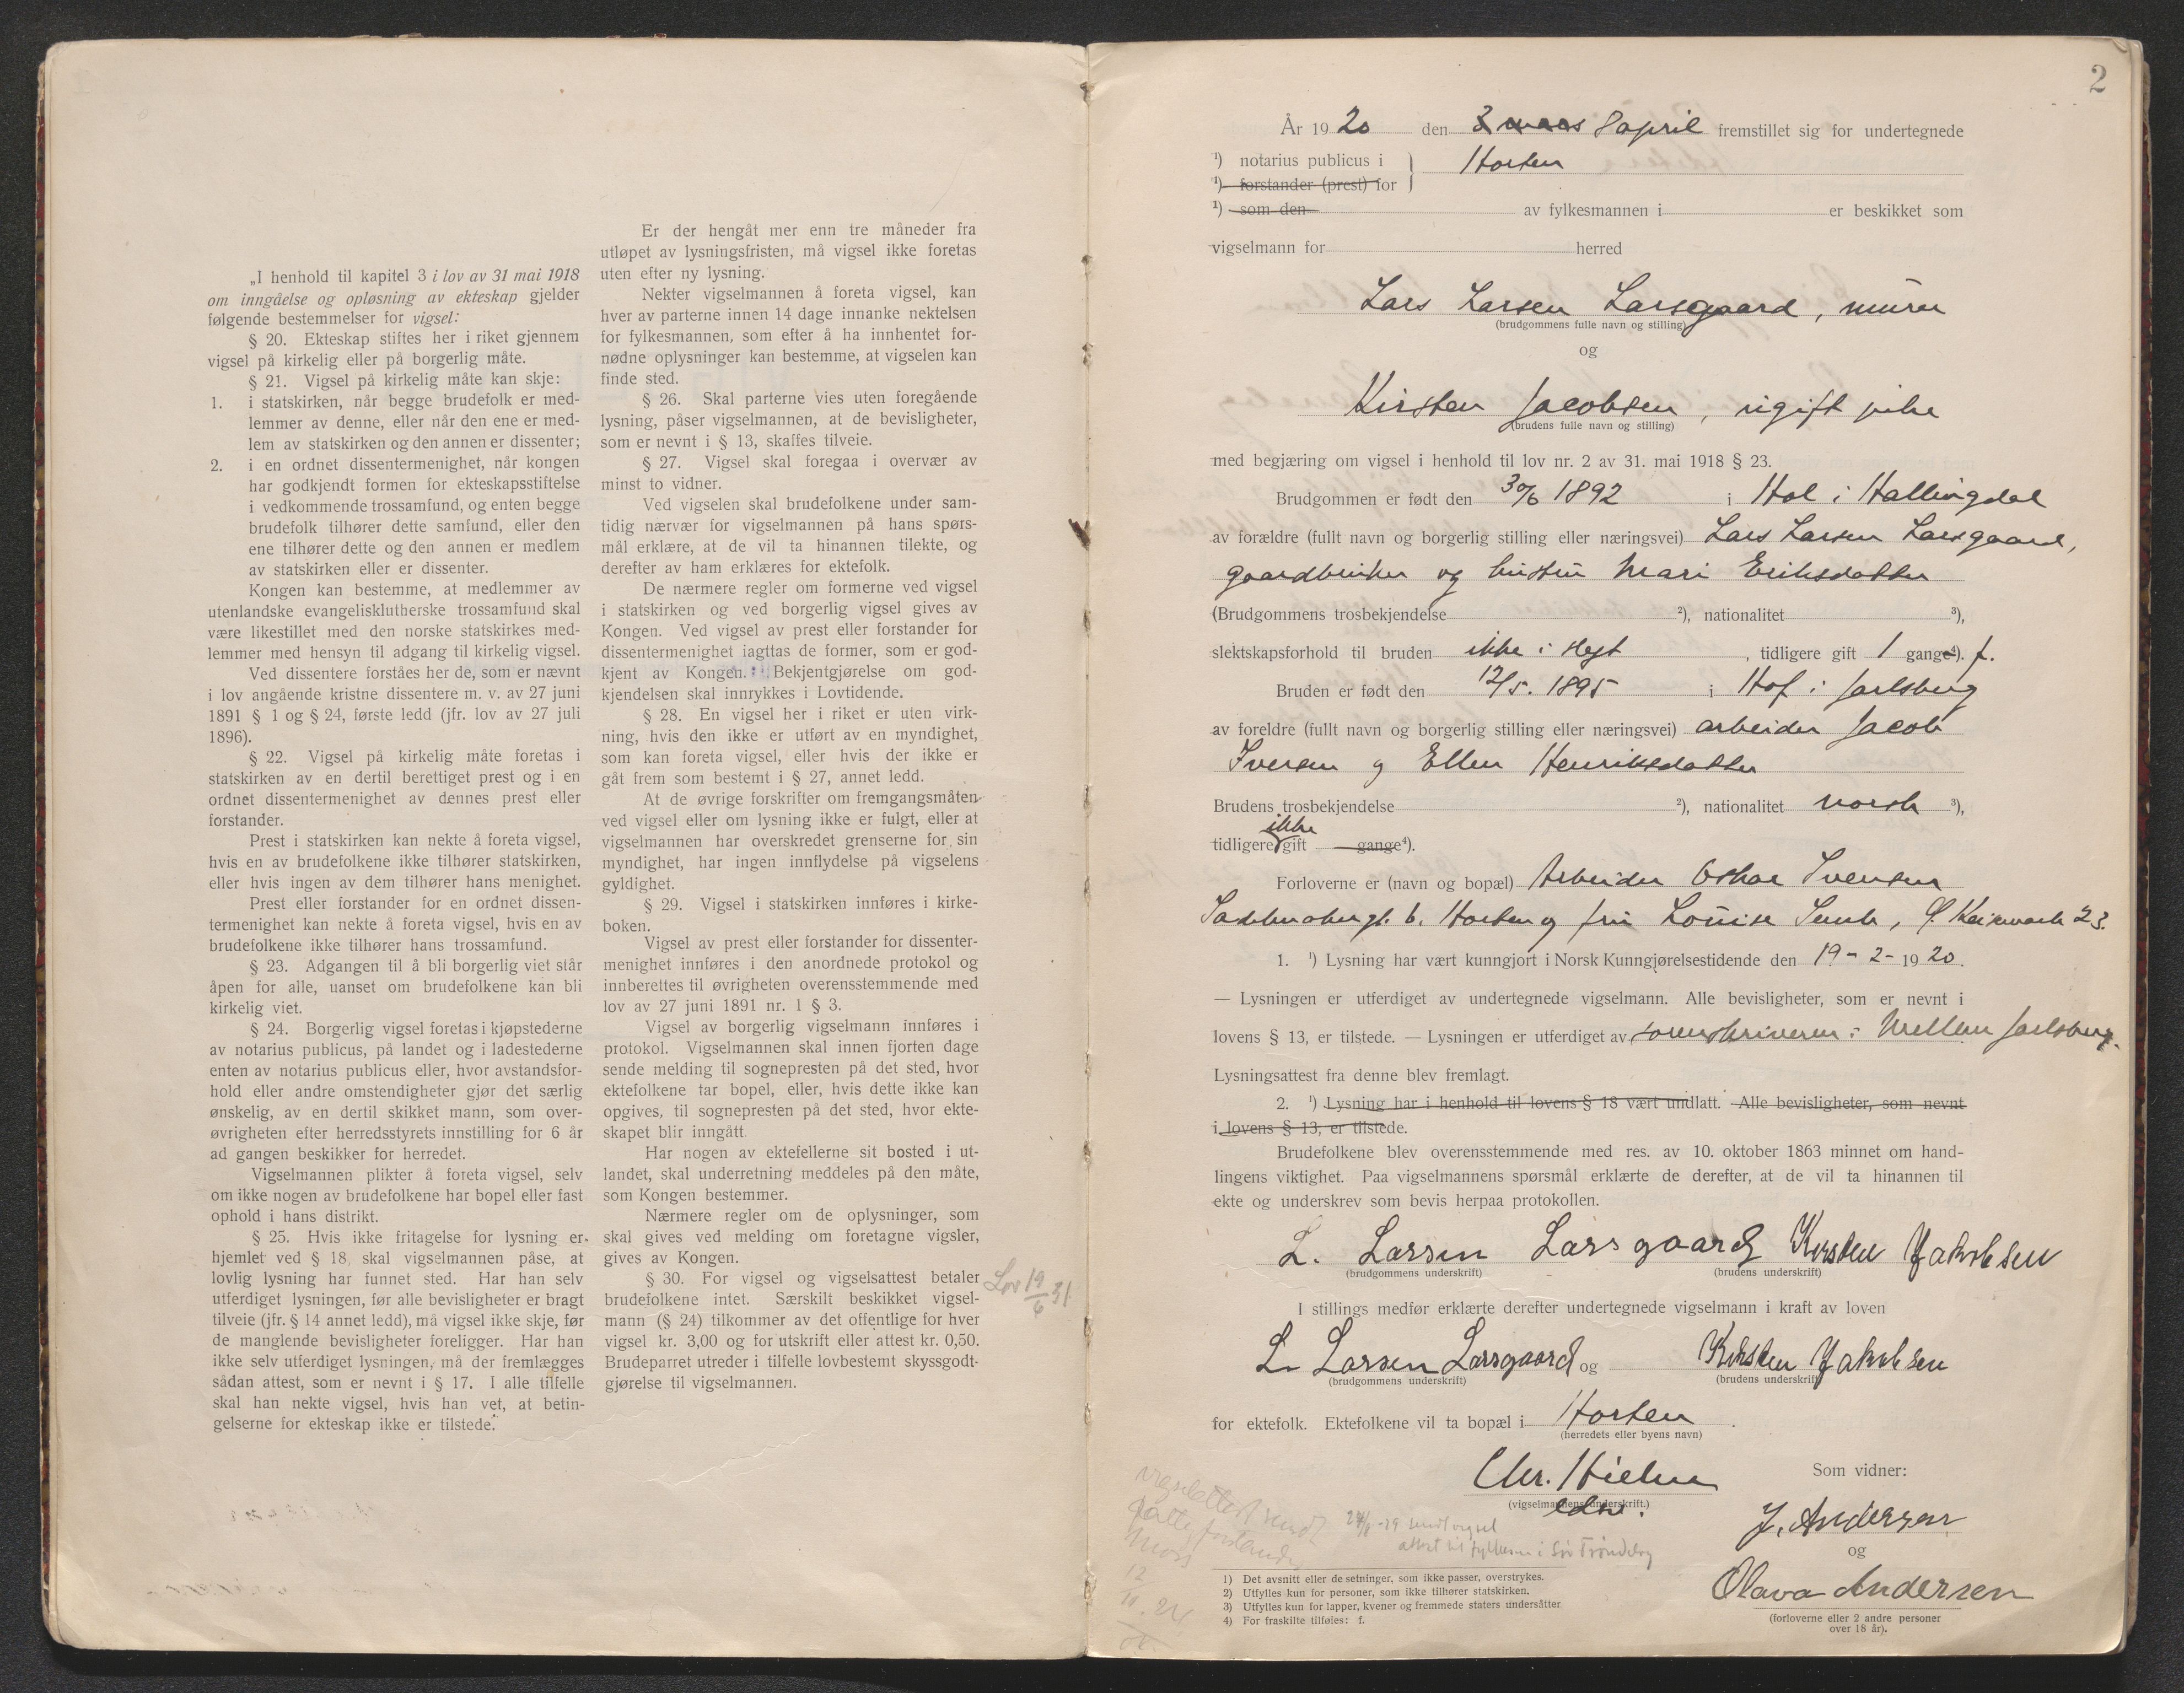 „I henhold til kapitel 3 i lov av 31 mai 1918
om inngåelse og opløsning av ekteskap gjelder
følgende bestemmelser for vigsel:
§ 20. Ekteskap stiftes her i riket gjennem
vigsel på kirkelig eller på borgerlig måte.
§ 21. Vigsel på kirkelig måte kan skje:
1. i statskirken, når begge brudefolk er med-
lemmer av denne, eller når den ene er med-
lem av statskirken og den annen er dissenter;
2. i en ordnet dissentermenighet, når kongen
har godkjendt formen for ekteskapsstiftelse
i vedkommende trossamfund, og enten begge
brudefolk tilhører dette samfund, eller den
ene tilhører dette og den annen er medlem
av statskirken eller er dissenter.
Kongen kan bestemme, at medlemmer av
utenlandske evangelisklutherske trossamfund skal
være likestillet med den norske statskirkes med-
lemmer med hensyn til adgang til kirkelig vigsel.
Ved dissentere forståes her de, som er nævnt
i lov angående kristne dissentere m. v. av 27 juni
1891 § 1 og § 24, første ledd (jfr. lov av 27 juli
1896).
§ 22. Vigsel på kirkelig måte foretas i
statskirken av en dertil berettiget prest og i en
ordnet dissentermenighet av dennes prest eller
forstander.
Prest i statskirken kan nekte å foreta vigsel,
hvis en av brudefolkene ikke tilhører statskirken,
eller hvis ingen av dem tilhører hans menighet.
Prest eller forstander for en ordnet dissen-
termenighet kan nekte å foreta vigsel, hvis en av
brudefolkene ikke tilhører hans trossamfund.
§ 23. Adgangen til å bli borgerlig viet står
åpen for alle, uanset om brudefolkene kan bli
kirkelig viet.
§ 24. Borgerlig vigsel foretas i kjøpstederne
av notarius publicus, på landet og i ladestederne
enten av notarius publicus eller, hvor avstandsfor-
hold eller andre omstendigheter gjør det særlig
ønskelig, av en dertil skikket mann, som over-
øvrigheten efter herredsstyrets innstilling for 6 år
ad gangen beskikker for herredet.
Vigselmannen plikter å foreta vigsel, selv
om ikke nogen av brudefolkene har bopel eller fast
ophold i hans distrikt.
§ 25. Hvis ikke fritagelse for lysning er
hjemlet ved § 18, skal vigselmannen påse, at
lovlig lysning har funnet sted. Har han selv
utferdiget lysningen, før alle bevisligheter er bragt
tilveie (jfr. § 14 annet ledd), må vigsel ikke skje, før
de manglende bevisligheter foreligger. Har han
ikke selv utferdiget lysningen, må der fremlægges
sådan attest, som er nevnt i § 17. I alle tilfelle
skal han nekte vigsel, hvis han vet, at betin-
gelserne for ekteskap ikke er tilstede.
Er der hengåt mer enn tre måneder fra
utløpet av lysningsfristen, må vigsel ikke foretas
uten efter ny lysning.
Nekter vigselmannen å foreta vigsel, kan
hver av parterne innen 14 dage innanke nektelsen
for fylkesmannen, som efter å ha innhentet for-
nødne oplysninger kan bestemme, at vigselen kan
finde sted.
§ 26. Skal parterne vies uten foregående
lysning, påser vigselmannen, at de bevisligheter,
som er nevnt i § 13, skaffes tilveie.
§ 27. Vigsel skal foregaa i overvær av
minst to vidner.
Ved vigselen skal brudefolkene under sam-
tidig nærvær for vigselmannen på hans spørs-
mål erklære, at de vil ta hinannen tilekte, og
derefter av ham erklæres for ektefolk.
De nærmere regler om formerne ved vigsel
i statskirken og ved borgerlig vigsel gives av
Kongen. Ved vigsel av prest eller forstander for
dissentermenighet iagttas de former, som er god-
kjent av Kongen. Bekjentgjørelse om god-
kjendelsen skal innrykkes i Lovtidende.
§ 28. En vigsel her i riket er uten virk-
ning, hvis den ikke er utført av en myndighet,
som kan foreta vigsel, eller hvis der ikke er
gåt frem som bestemt i § 27, annet ledd.
At de øvrige forskrifter om fremgangsmåten
ved vigsel eller om lysning ikke er fulgt, eller at
vigselmannen har overskredet grenserne for sin
myndighet, har ingen innflydelse på vigselens
gyldighet.
§ 29. Vigsel i statskirken innføres i kirke-
boken.
Vigsel av prest eller forstander for dissenter-
menighet innføres i den anordnede protokol og
innberettes til øvrigheten overensstemmende med
lov av 27 juni 1891 nr. 1 § 3.
Vigsel av borgerlig vigselmann innføres i
protokol. Vigselmannen skal innen fjorten dage
sende melding til sognepresten på det sted, hvor
ektefolkene tar bopel, eller, hvis dette ikke kan
opgives, til sognepresten på det sted, hvor ekte-
skapet blir inngått.
Har nogen av ektefellerne sit bosted i ut-
landet, skal underretning meddeles på den måte,
som Kongen bestemmer.
Nærmere regler om de oplysninger, som
skal gives ved melding om foretagne vigsler,
gives av Kongen.
§ 30. For vigsel og vigselsattest betaler
brudefolkene intet. Særskilt beskikket vigsel-
mann (§ 24) tilkommer av det offentlige for hver
vigsel kr. 3,00 og for utskrift eller attest kr. 0,50.
Brudeparret utreder i tilfelle lovbestemt skyssgodt-
gjørelse til vigselmannen.
Lov 19/6 31
2
År 1920 den 3 mars 8 april fremstillet sig for undertegnede
¹) notarius publicus i Horten
¹) forstander (prest) for
¹) som den av fylkesmannen i er beskikket som
vigselmann for herred
Lars Larsen Larsgaard, murer
(brudgommens fulle navn og stilling)
og
Kirsten Jacobsen, ugift pike
(brudens fulle navn og stilling)
med begjæring om vigsel i henhold til lov nr. 2 av 31. mai 1918 § 23.
Brudgommen er født den 30/6 1892 i Hol i Hallingdal
av forældre (fullt navn og borgerlig stilling eller næringsvei) Lars Larsen Larsgaard,
gaardbruker og hustru Mari Eriksdatter
(Brudgommens trosbekjendelse ²), nationalitet ³),
slektskapsforhold til bruden ikke i slegt, tidligere gift 1 gange⁴). f.
Bruden er født den 12/5. 1895 i Hof i Jarlsberg
av foreldre (fullt navn og borgerlig stilling eller næringsvei) arbeider Jacob
Iversen og Ellen Henriksdatter
Brudens trosbekjendelse ²), nationalitet norsk ³),
ikke
tidligere gift gange⁴).
Forloverne er (navn og bopæl) Arbeider Oskar Svensen
6. Horten og fru Louise 23.
1. ¹) Lysning har vært kunngjort i Norsk Kunngjørelsestidende den 19-2-1920.
— Lysningen er utferdiget av undertegnede vigselmann. Alle bevisligheter, som er nevnt i
lovens § 13, er tilstede. — Lysningen er utferdiget av sorenskriveren i Mellem Jarlsberg.
Lysningsattest fra denne blev fremlagt.
2. ¹) Lysning har i henhold til lovens § 18 vært undlatt. Alle bevisligheter, som nevnt
i lovens § 13, er tilstede.
Brudefolkene blev overensstemmende med res. av 10. oktober 1863 minnet om hand-
lingens viktighet. Paa vigselmannens spørsmål erklærte de derefter, at de vil ta hinannen til
ekte og underskrev som bevis herpaa protokollen.
L. Larsen Larsgaard Kirsten Jakobsen
(brudgommens underskrift) (brudens underskrift)
I stillings medfør erklærte derefter undertegnede vigselmann i kraft av loven
L. Larsen Larsgaard og Kirsten Jakobsen
(brudgommens underskrift) (brudens underskrift)
for ektefolk. Ektefolkene vil ta bopæl i Horten.
(herredets eller byens navn)
Chr. Hielm
(vigselmannens underskrift.)
edsv.
Som vidner:
J. Andersen
og
Olava Andersen
(forloverne eller 2 andre personer
over 18 år).
vigselattest sendt
Moss
12
24/8-29 sendt vigsel
attest til fylkesm i Sør Trøndelag
1) Det avsnitt eller de setninger, som ikke passer, overstrykes.
2) Utfylles kun for personer, som ikke tilhører statskirken.
3) Utfylles kun for lapper, kvener og fremmede staters undersåtter
4) For fraskilte tilføies: f.